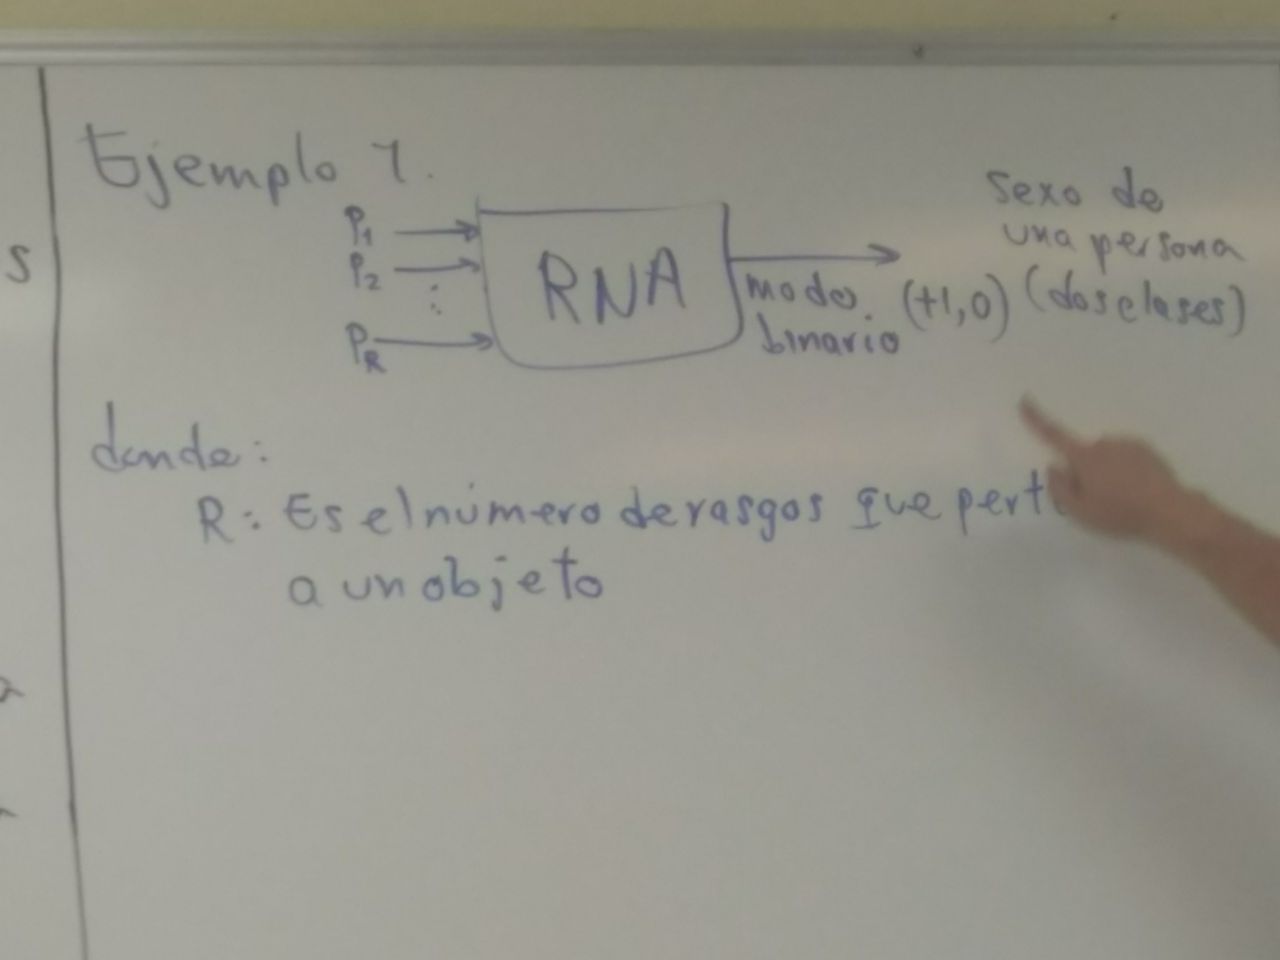 Ejemplo 1.
P1
P2
⋮
PR
RNA
modo
binario
(+1,0)
Sexo de
una persona
(dos clases)
donde:
R: Es el número de rasgos que pert
a un objeto
s